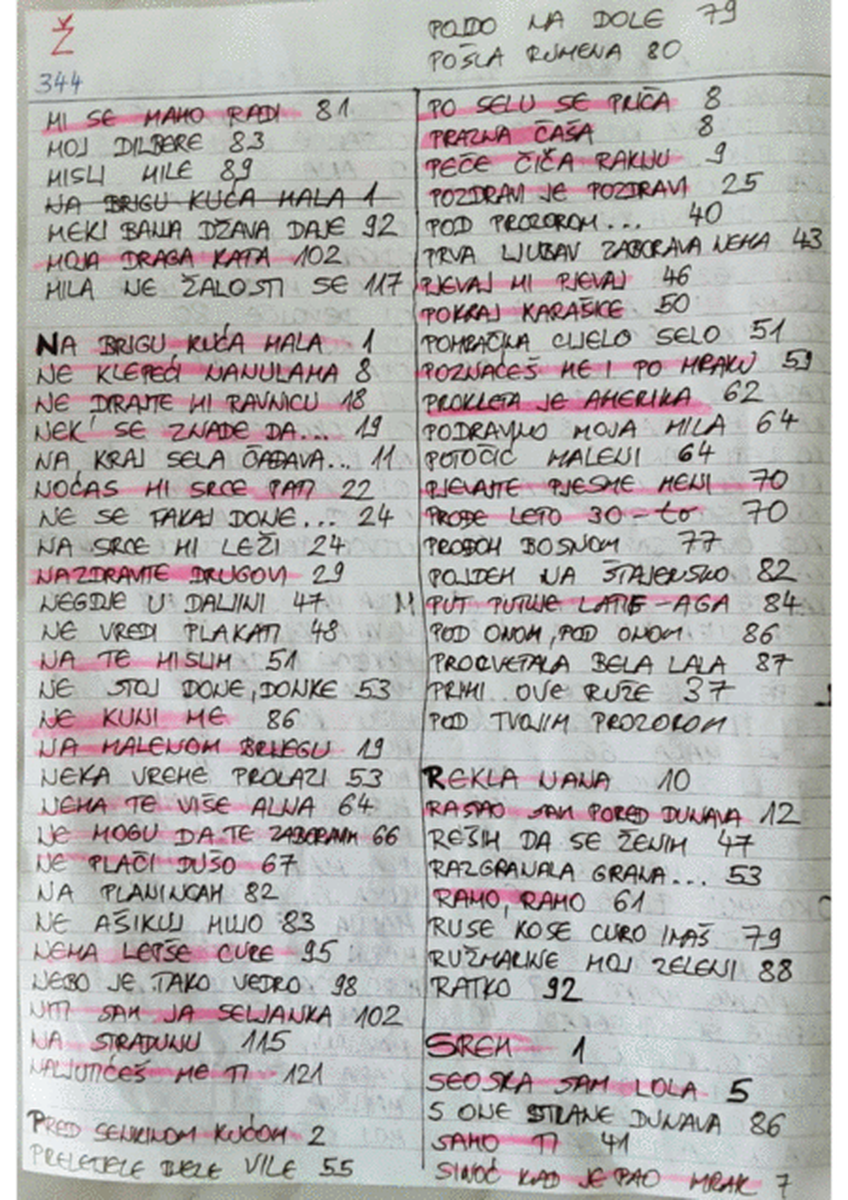 Ž
344
MI SE MAHO RADI 81
MOJ DILBERE 83
MISLI MILE 89
NA BRIGU KUĆA MALA 1
MEKI BANJA DŽAVA DAJE 92
MOJA DRAGA KATA 102
MILA NE ŽALOSTI SE 117
NA BRIGU KUĆA MALA 1
NE KLEPEĆI NANULAMA 8
NE DIRAJTE MI RAVNICU 18
NEK' SE ZNADE DA... 19
NA KRAJ SELA ČAĐAVA... 11
NOĆAS MI SRCE PATI 22
NE SE FAKAJ DONE... 24
NA SRCE MI LEŽI 24
NAZDRAVITE DRUGOVI 29
NEGDJE U DALJINI 47
NE VREDI PLAKATI 48
NA TE MISLIM 51
NE STOJ DONE, DONKE 53
NE KUNI ME 86
NA MALENOM BRIJEGU 19
NEKA VREME PROLAZI 53
NEMA TE VIŠE ALMA 64
NE MOGU DA TE ZABORAVIM 66
NE PLAČI DUŠO 67
NA PLANINCAH 82
NE AŠIKUJ MUJO 83
NEMA LEPŠE CURE 95
NEBO JE TAKO VEDRO 98
NITI SAM JA SELJANKA 102
NA STRADUNU 115
NALJUTIĆEŠ ME TI 121
PRED SENKINOM KUĆOM 2
PRELETJELE BIJELE VILE 55
POĐO NA DOLE 79
POŠLA RUMENA 80
PO SELU SE PRIČA 8
PRAZNA ČAŠA 8
PEČE ČIČA RAKIJU 9
POZDRAVI JE POZDRAVI 25
POD PROZOROM... 40
PRVA LJUBAV ZABORAVA NEMA 43
PJEVAJ MI PJEVAJ 46
POKRAJ KARAŠICE 50
POMRAČINA CIJELO SELO 51
POZNAĆEŠ ME I PO MRAKU 59
PROKLETA JE AMERIKA 62
PODRAVINO MOJA MILA 64
POTOČIĆ MALENI 64
PJEVAJTE PJESME MENI 70
PROĐE LETO 30-to 70
PROĐOH BOSNOM 77
POJDEM NA ŠTAJERSKO 82
M PUT PUTUJE LATIF-AGA 84
POD ONOM, POD ONOM 86
PROCVETALA BELA LALA 87
PRIMI OVE RUŽE 37
POD TVOJIM PROZOROM
REKLA NANA 10
RASPAO SAM PORED DUNAVA 12
REŠIH DA SE ŽENIM 47
RAZGRANALA GRANA... 53
RAMO, RAMO 61
RUSE KOSE CURO IMAŠ 79
RUŽMARINE MOJ ZELENI 88
RATKO 92
SREM 1
SEOSKA SAM LOLA 5
S ONE STRANE DUNAVA 86
SAMO TI 41
SINOĆ KAD JE PAO MRAK 7